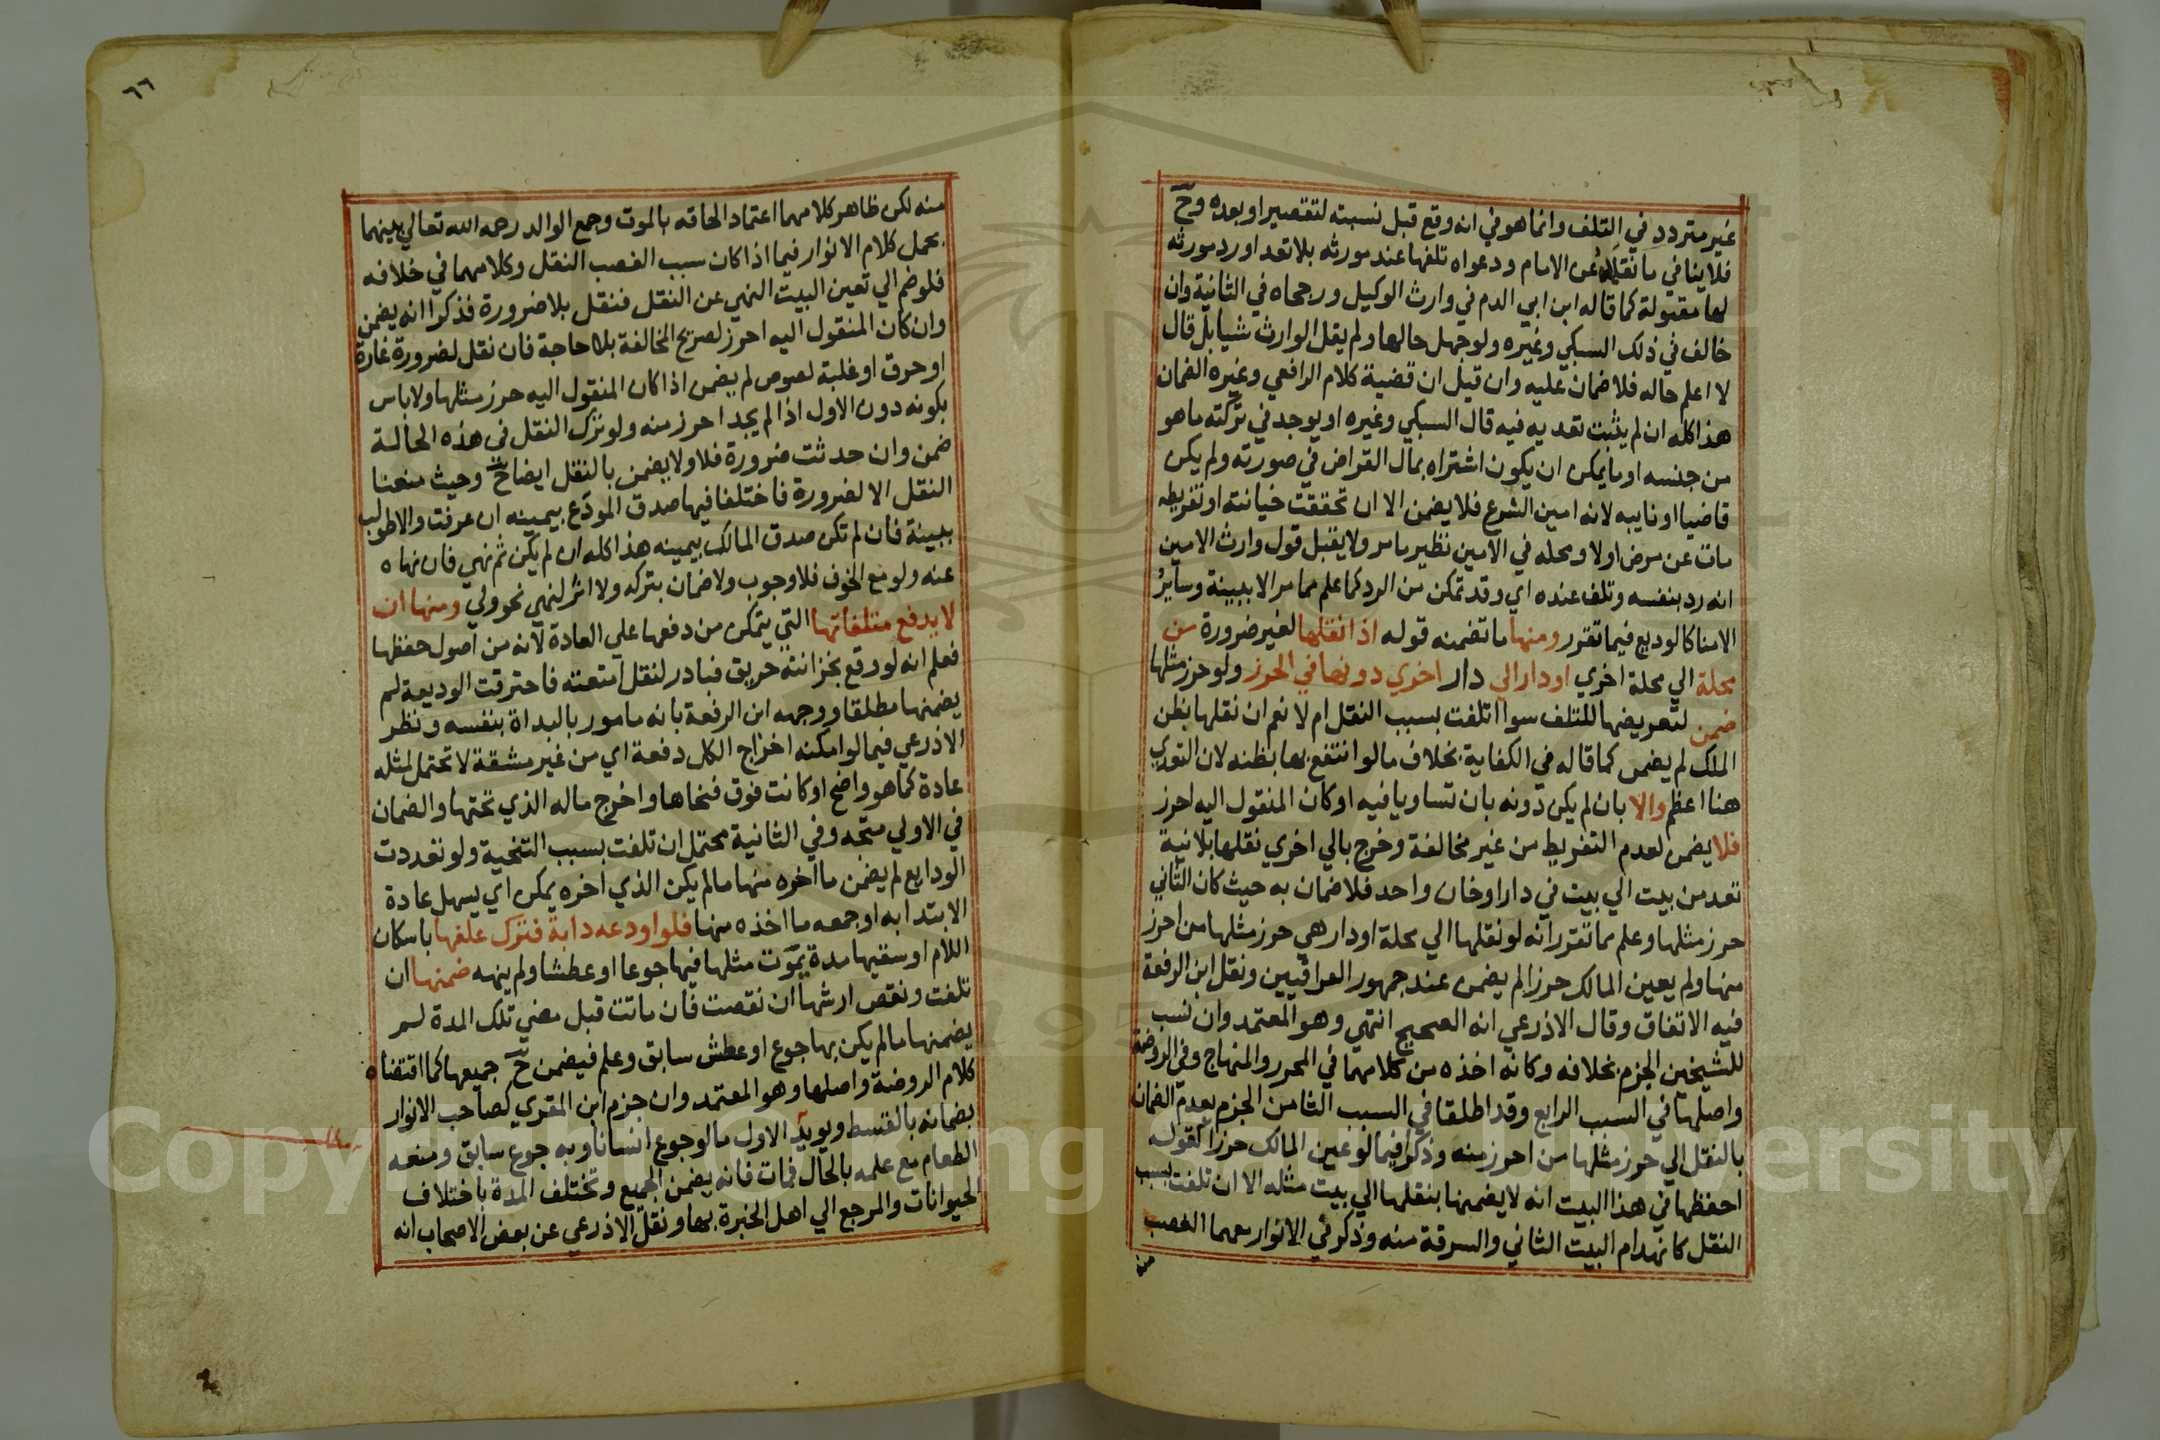 غير متردد في التلف وانما هو في انه وقع قبل نسبته لتقصير او بعده وح
فلا ينافي ما نقلاه عن الامام ودعواه تلفها عند مورثه بلا تعد او رد مورثه
لها مقبولة كما قاله ابن ابي الدم في وارث الوكيل ورجحاه في الثانية وان
خالف في ذلك السبكي وغيره ولو جهل حالها ولم يقل الوارث شيا بل قال
لا اعلم حاله فلا ضمان عليه وان قيل ان قضية كلام الرافعي وغيره الضمان
هذا كله ان لم يثبت تعديه فيه قال السبكي وغيره او يوجد في تركته ما هو
من جنسه او ما يمكن ان يكون اشتراه بمال القراض في صورته ولم يكن
قاضيا او نايبه لانه امين الشرع فلا يضمن الا ان تحققت خيانته او تفريطه
مات عن مرض اولا ومحله في الامين نظير ما مر ولا يقبل قول وارث الامين
انه رد بنفسه وتلف عنده اي وقد تمكن من الرد كما علم مما مر الا ببينة وساير
الامنا كالوديع فيما تقرر ومنها ما تضمنه قوله اذا نقلها لغير ضرورة من
محلة الي محلة اخري او دار الي دار اخري دونها في الحرز ولو حرز مثلها
ضمن لتعريضها للتلف سوا اتلفت بسبب النقل ام لا نعم ان نقلها بظن
الملك لم يضمن كما قاله في الكفاية بخلاف ما لو انتفع بها بظنه لان التعدي
هنا اعظم والا بان لم يكن دونه بان تساويا فيه او كان المنقول اليه احرز
فلا يضمن لعدم التفريط من غير مخالفة وخرج بالي اخري نقلها بلا نية
تعد من بيت الي بيت في دار او خان واحد فلا ضمان به حيث كان الثاني
حرز مثلها وعلم مما تقرر انه لو نقلها الي محلة او دار هي حرز مثلها من احرز
منها ولم يعين المالك حرزا لم يضمن عند جمهور العراقيين ونقل ابن الرفعة
فيه الاتفاق وقال الاذرعي انه الصحيح انتهي وهو المعتمد وان نسب
للشيخين الجزم بخلافه وكانه اخذه من كلامهما في المحرر والمنهاج وفي الروضة
واصلها في السبب الرابع وقد اطلقا في السبب الثامن الجزم بعدم الضمان
بالنقل الي حرز مثلها من احرز منه وذكرا فيما لو عين المالك حرزا كقوله
احفظها في هذا البيت انه لا يضمنها بنقلها الي بيت مثله الا ان تلفت بسبب
النقل كانهدام البيت الثاني والسرقة منه وذكر في الانوار معهما الغصب
منه
٦٦
منه لكن ظاهر كلامهما اعتماد الحاقه بالموت وجمع الوالد رحمه الله تعالي بينهما
بحمل كلام الانوار فيما اذا كان سبب الغصب النقل وكلامهما في خلافه
فلو ضم الي تعين البيت النهي عن النقل فنقل بلا ضرورة فذكرا انه يضمن
وان كان المنقول اليه احرز لصريح المخالفة بلا حاجة فان نقل لضرورة غارة
او حرق او غلبة لصوص لم يضمن اذا كان المنقول اليه حرز مثلها ولا باس
بكونه دون الاول اذا لم يجد احرز منه ولو ترك النقل في هذه الحالة
ضمن وان حدثت ضرورة فلا ولا يضمن بالنقل ايضا ح وحيث منعنا
النقل الا لضرورة فاختلفا فيها صدق المودع بيمينه ان عرفت والا طولب
ببينة فان لم تكن صدق المالك بيمينه هذا كله ان لم يكن ثم نهي فان نهاه
عنه ولو مع الخوف فلا وجوب ولا ضمان بتركه ولا اثر لنهي نحو ولي ومنها ان
لا يدفع متلفاتها التي يتمكن من دفعها علي العادة لانه من اصول حفظها
فعلم انه لو وقع بخزانته حريق فبادر لنقل امتعته فاحترقت الوديعة لم
يضمنها مطلقا ووجهه ابن الرفعة بانه مامور بالبداة بنفسه ونظر
الاذرعي فيما لو امكنه اخراج الكل دفعة اي من غير مشقة لا تحتمل لمثله
عادة كما هو واضح او كانت فوق فنحاها واخرج ماله الذي تحتها والضمان
في الاولي متجه وفي الثانية محتمل ان تلفت بسبب التنحية ولو تعددت
الودايع لم يضمن ما اخره منها ما لم يكن الذي اخره يمكن اي يسهل عادة
الابتدا به او جمعه ما اخذه منها فلو اودعه دابة فترك علفها باسكان
اللام او سقيها مدة يموت مثلها فيها جوعا او عطشا ولم ينهه ضمنها ان
تلفت ونقص ارشها ان نقصت فان ماتت قبل مضي تلك المدة لم
يضمنها ما لم يكن بها جوع او عطش سابق وعلم فيضمن ح جميعها كما اقتضاه
كلام الروضة واصلها وهو المعتمد وان جزم ابن المقري كصاحب الانوار
بضمانه بالقسط ويويد الاول ما لو جوع انسانا وبه جوع سابق ومنعه
الطعام مع علمه بالحال فمات فانه يضمن الجميع وتختلف المدة باختلاف
الحيوانات والمرجع الي اهل الخبرة بها ونقل الاذرعي عن بعض الاصحاب انه
Copyright © King Saud University